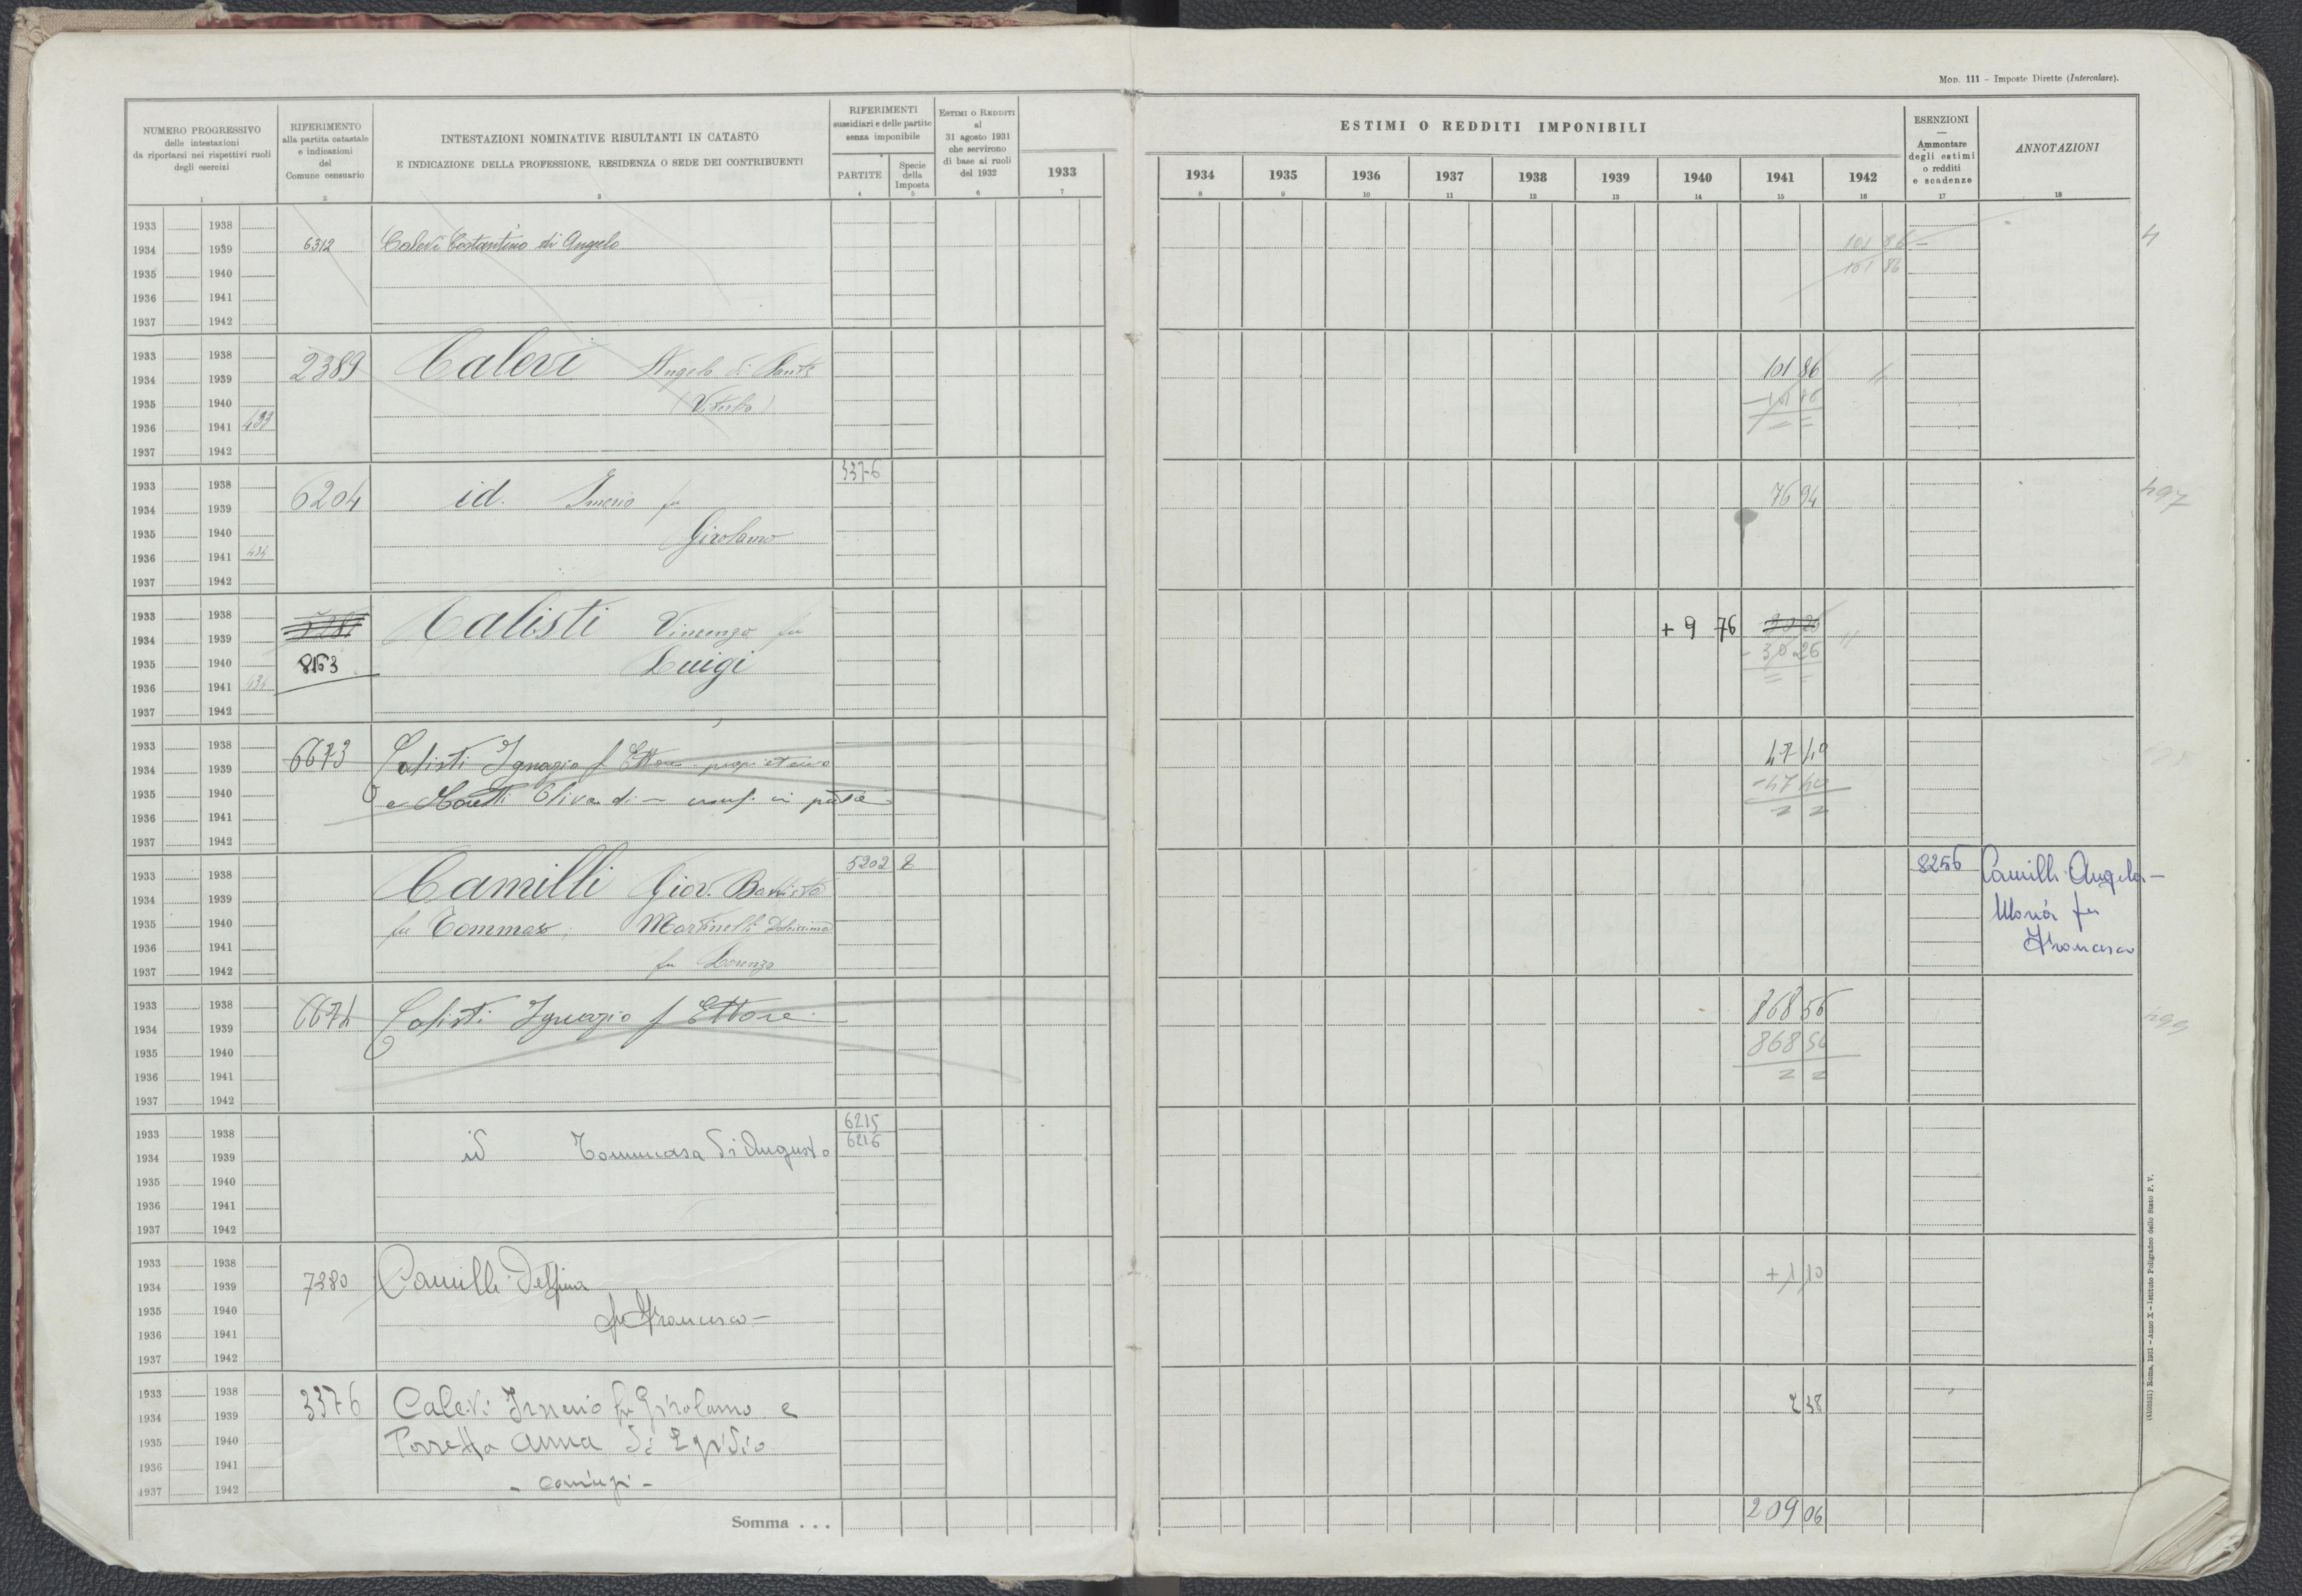 Mod. 111 - Imposte Dirette (Intercalare).
NUMERO PROGRESSIVO
delle intestazioni
da riportarsi nei rispettivi ruoli
degli esercizi
1
RIFERIMENTO
alla partita catastale
e indicazioni
del
Comune censuario
2
INTESTAZIONI NOMINATIVE RISULTANTI IN CATASTO
E INDICAZIONE DELLA PROFESSIONE, RESIDENZA O SEDE DEI CONTRIBUENTI
3
RIFERIMENTI
sussidiari e delle partite
senza imponibile
PARTITE
4
Specie
della
Imposta
5
ESTIMI O REDDITI
al
31 agosto 1931
che servirono
di base ai ruoli
del 1932
6
1933
7
ESTIMI O REDDITI IMPONIBILI
1934 1935 1936 1937 1938 1939 1940 1941 1942
8 9 10 11 12 13 14 15 16
ESENZIONI
—
Ammontare
degli estimi
o redditi
e scadenze
17
ANNOTAZIONI
18
1933 1938
1934 1939 6312 Calevi Costantino di Angelo 101 86 4
1935 1940 101 86
1936 1941
1937 1942
1933 1938
1934 1939 2389 Calevi Angelo di Sante 101 86
1935 1940 (Viterbo)
1936 1941 433
1937 1942
1933 1938 3376
1934 1939 6204 id. Irnerio fu 76 94 497
1935 1940 Girolamo
1936 1941 434
1937 1942
1933 1938
1934 1939 Calisti Vincenzo fu + 9 76
1935 1940 8163 Luigi - 30 26
1936 1941
1937 1942
1933 1938
1934 1939 6673 Calisti Ignazio f Ettore proprietario 47 40
1935 1940 e Moretti Oliva di - usuf. in parte - 47 40
1936 1941
1937 1942
1933 1938 5202 8256
1934 1939 Camilli Giov. Battista Camilli Angela -
1935 1940 fu Tommaso, Martinelli Maria fu
1936 1941 fu Lorenzo Francesco
1937 1942
1933 1938
1934 1939 6674 Calisti Ignazio f Ettore 868 56 499
1935 1940 868 56
1936 1941
1937 1942
1933 1938 6215
1934 1939 id Tommasa di Augusto 6216
1935 1940
1936 1941
1937 1942
1933 1938
1934 1939 7380 Camilli Delfina + 1 10
1935 1940 fu Francesco -
1936 1941
1937 1942
1933 1938
1934 1939 3376 Calevi Irnerio fu Girolamo e 2 38
1935 1940 Porretta Anna di Egidio
1936 1941
1937 1942 - coniugi -
Somma . . . 209 06
(4103551) Roma, 1931 - Anno X - Istituto Poligrafico dello Stato P. V.